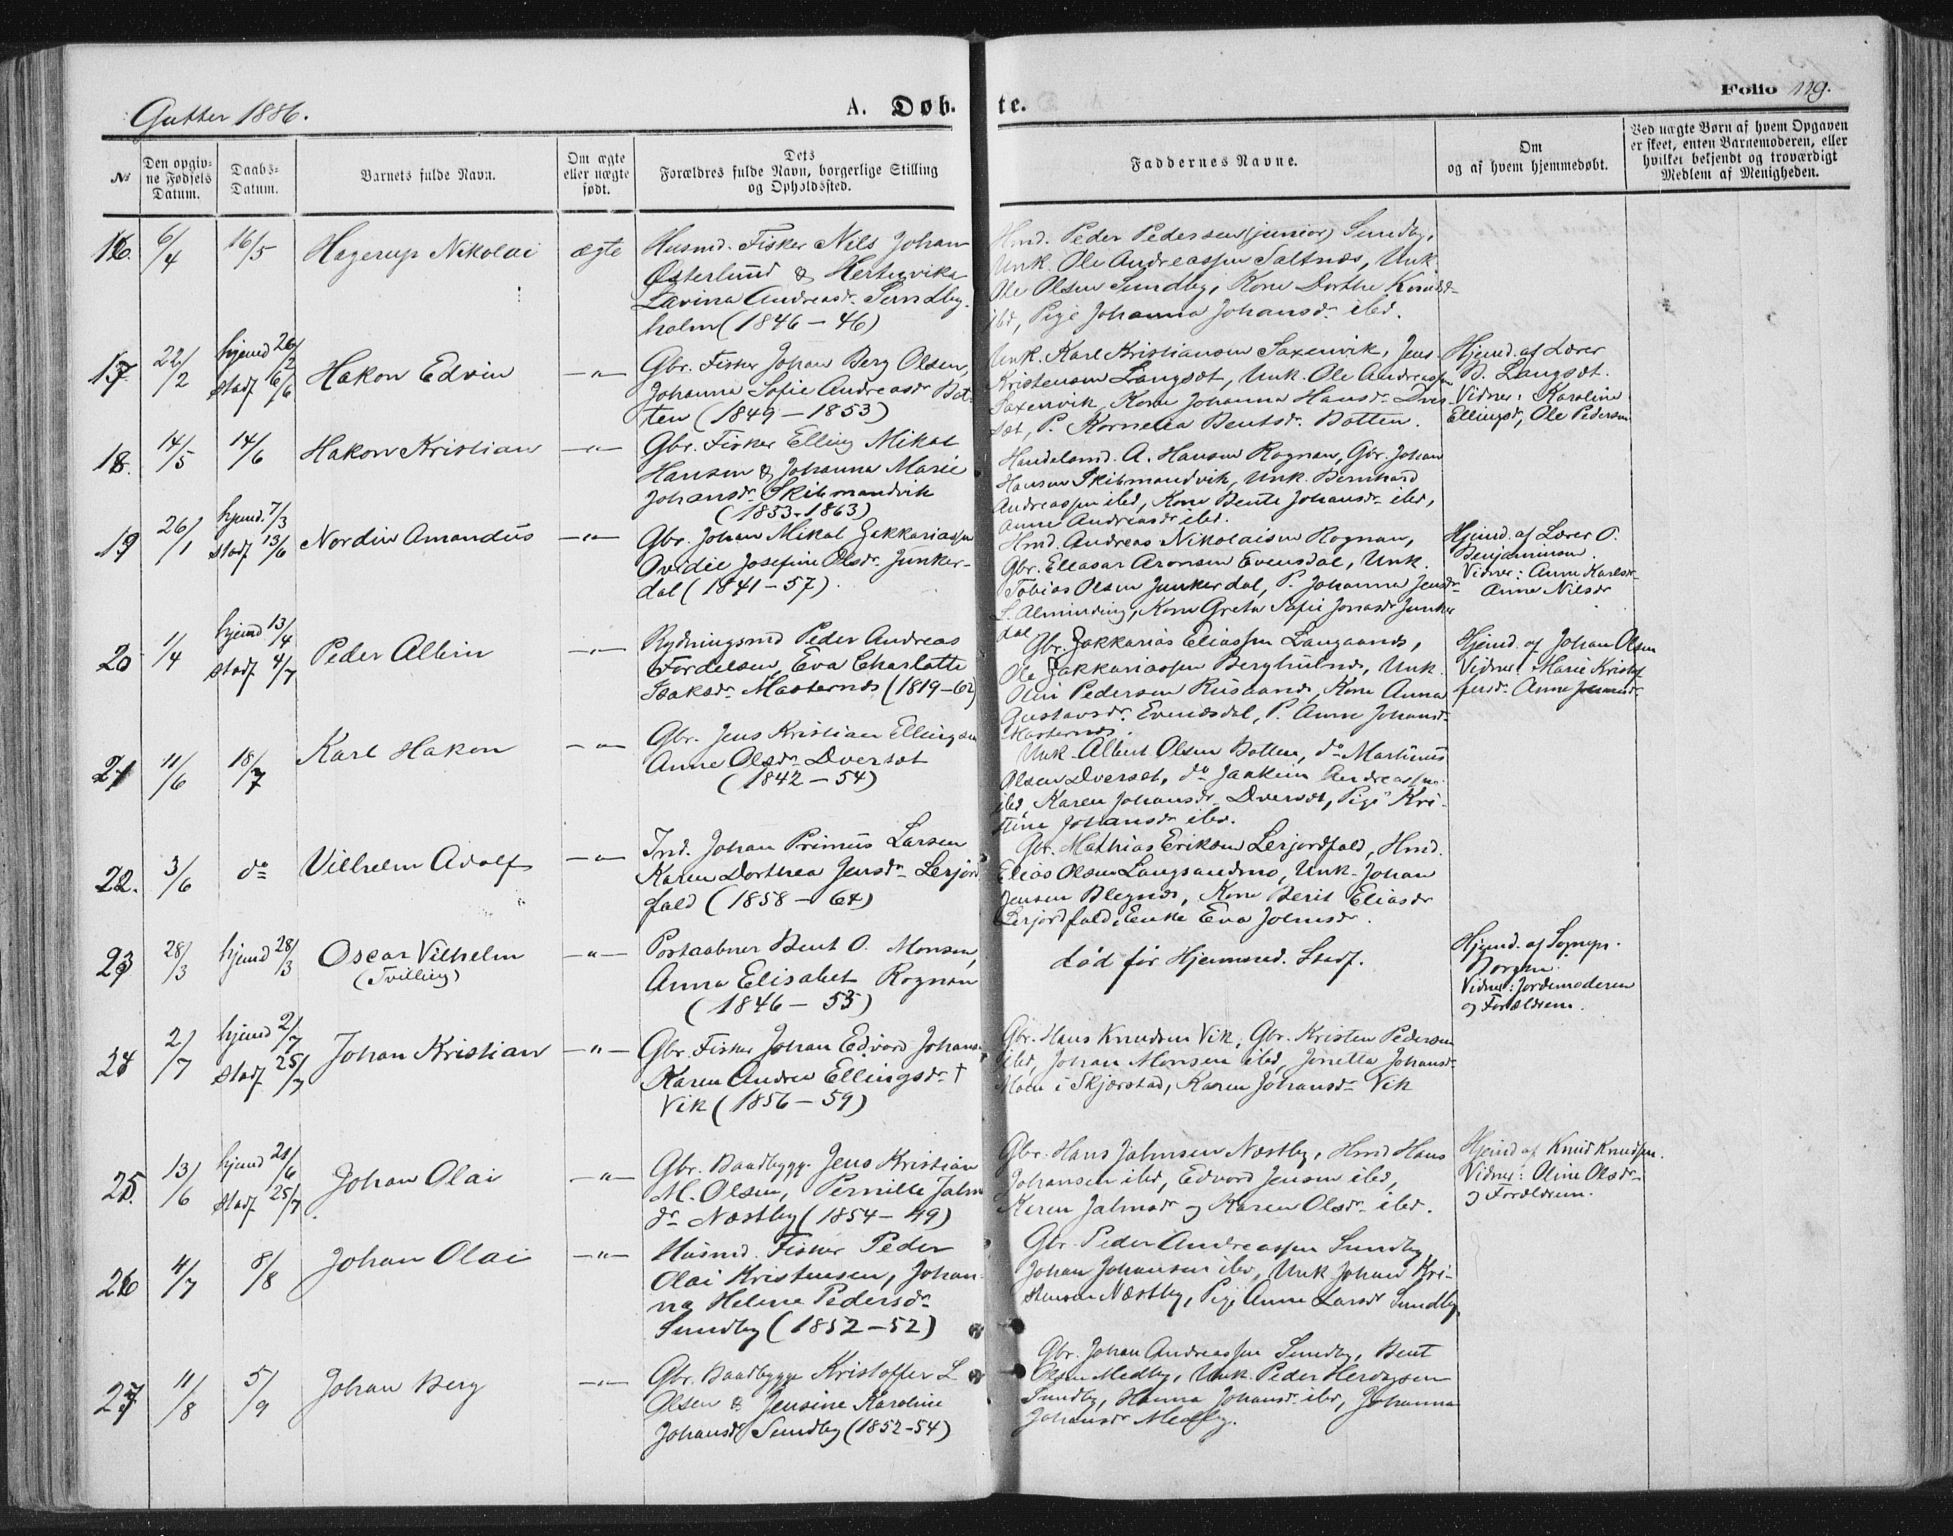 Gutter 1886.
A. Døb-
te.
Folio 119.
№
Den opgiv-
ne Fødsels
Datum.
Daabs-
Datum.
Barnets fulde Navn.
Om ægte
eller uægte
født.
Dets
Forældres fulde Navn, borgerlige Stilling
og Opholdssted.
Faddernes Navne.
Om
og af hvem hjemmedøbt.
Ved uægte Børn af hvem Opgaven
er skeet, enten Barnemoderen, eller
hvilket bekjendt og troværdigt
Medlem af Menigheden.
16. 6/4 16/5 Hagerup Nikolai ægte
Husmd. Fisker Nils Johan
Østerlund & Hertuvika
Lavina Andreasdr. Sundby-
holm (1846 – 46)
Hmd. Peder Pedersen (junior) Sundby,
Unk. Ole Andreassen Saltnæs, Unk.
Ole Olsen Sundby, Kone Dorthe
ibd, Pige Johanna Johansdr. ibd.
17 22/2 hjemd 26/2
stadf 6/6
Hakon Edvin —"—
Gbr. Fisker Johan Berg Olsen,
Johanna Sofie Andreasdr. Bot-
ten (1849 – 1853)
Unk. Karl Kristiansen Saxenvik, Jens
Kristensen Langset, Unk. Ole Andreassen
Saxenvik, Kone Johanna Hansdr. Dver-
set, P. Kornelia Bentsdr. Botten.
Hjemd. af Lærer
B. Langset.
Vidner: Karoline
Ellingsdr, Ole Pedersen
18. 14/5 14/6 Hakon Kristian —"—
Gbr. Fisker Elling Mikal
Hansen & Johanna Marie
Johansdr. Skibmandvik
(1853–1863)
Handelsmd. A. Hansen Rognan, Gbr. Johan
Hansen Skibmandvik, Unk. Bernhard
Andreassen ibd, Kone Bente Johansdr. ibd,
Anne Andreasdr ibd.
19 26/1 hjemd. 7/3
stadf 13/6
Nordin Amandus —"—
Gbr. Johan Mikal Zakkariassen
Ovidie Josefine Olsdr. Junker-
dal (1841–57).
Hmd. Andreas Nikolaisen Rognan,
Gbr. Elleasar Aronsen Evensdal, Unk.
Tobias Olsen Junkerdal, P. Johanna Jensdr
S. Alminding, Kone Greta Sofie Jonasdr Junker
dal
Hjemd. af Lærer O.
Benjaminsen.
Vidner: Anne Karlsdr
Anne Nilsdr
20 1/4 hjemd 13/4
stadf 4/7
Peder Albin —"—
Rydningsmd Peder Andreas
Fordelsen, Eva Charlotte
Isaksdr. Masternes (1819–62)
Gbr. Zakkarias Eliassen Langaanes,
Ole Zakkariassen Berghulnes, Unk.
Olai Pedersen Rusaanes, Kone Anna
Gustavsdr. Evensdal, P. Anne Johansdr
Masternes.
Hjemd. af Johan Olsen
Vidner: Marie Kristof
fersdr. Anne
21 11/6 18/7 Karl Hakon —"—
Gbr. Jens Kristian Ellingsen
Anne Olsdr. Dverset
(1842 – 54)
Unk. Albert Olsen Botten, do Martinus
Olsen Dverset, do Joakim Andreassen
ibd, Karen Johansdr. Dverset, Pige Kri-
stine Johansdr ibd.
22. 3/6 do Vilhelm Adolf —"—
Ind. Johan Primus Larsen
Karen Dorthea Jensdr. Lerjord
fald (1858 – 64)
Gbr. Mathias Eriksen Lerjordfald, Hmd.
Elias Olsen Langsandmo, Unk. Johan
Jensen Blegnes, Kone Berit Eliasdr
Lerjordfald, Enke Eva Johnsdr.
23 28/3 hjemd 28/3 Oscar Vilhelm —"—
(Tvilling)
Postaabner Bent O. Monsen,
Anna Elisabet Rognan
(1846 – 53)
død før Hjemmed. Stadf.
Hjemd. af Sognepr.
Borgen.
Vidner: Jordemoderen
og Forældrene.
24 2/7 hjemd 2/7
stadf 25/7
Johan Kristian —"—
Gbr. Fisker Johan Edvard Johans.
Karen Andrea Ellingsdr. †
Vik (1856 – 59)
Gbr. Hans Knudsen Vik, Gbr. Kristen Pedersen
ibd, Johan Monsen ibd, Jonetta Johansdr.
Moen i Skjerstad, Karen Johansdr. Vik
25. 13/6 hjemd 21/6
stadf 25/7.
Johan Olai —"—
Gbr. Baadbygg. Jens Kristian
M. Olsen, Pernille Jahn
dr. Næstby (1854 – 49)
Gbr. Hans Johnsen Næstby, Hmd Hans
Johansen ibd, Edvard Jensen ibd,
Karen Jahnsdr og Karen Olsdr. ibd.
Hjemd af Knud Knudsen.
Vidner: Oline Olsdr.
og Forældrene.
26 4/7 8/8 Johan Olai —"—
Husmd. Fisker Peder
Olai Kristensen, Johan-
na Helene Pedersdr.
Sundby (1852–52)
Gbr. Peder Andreassen Sundby,
Johan Johansen ibd, Unk Johan Kri-
stensen Næstby, Pige Anne Larsdr Sundby,
27 11/8 5/9 Johan Berg —"—
Gbr. Baadbygge Kristoffer L
Olsen & Jensine Karoline
Johansdr Sundby (1852–54)
Gbr. Johan Andreassen Sundby, Bent
Olsen Medby, Unk. Peder
Sundby, Hanna Johansdr. ibd, Johanna
Johansdr Medby.